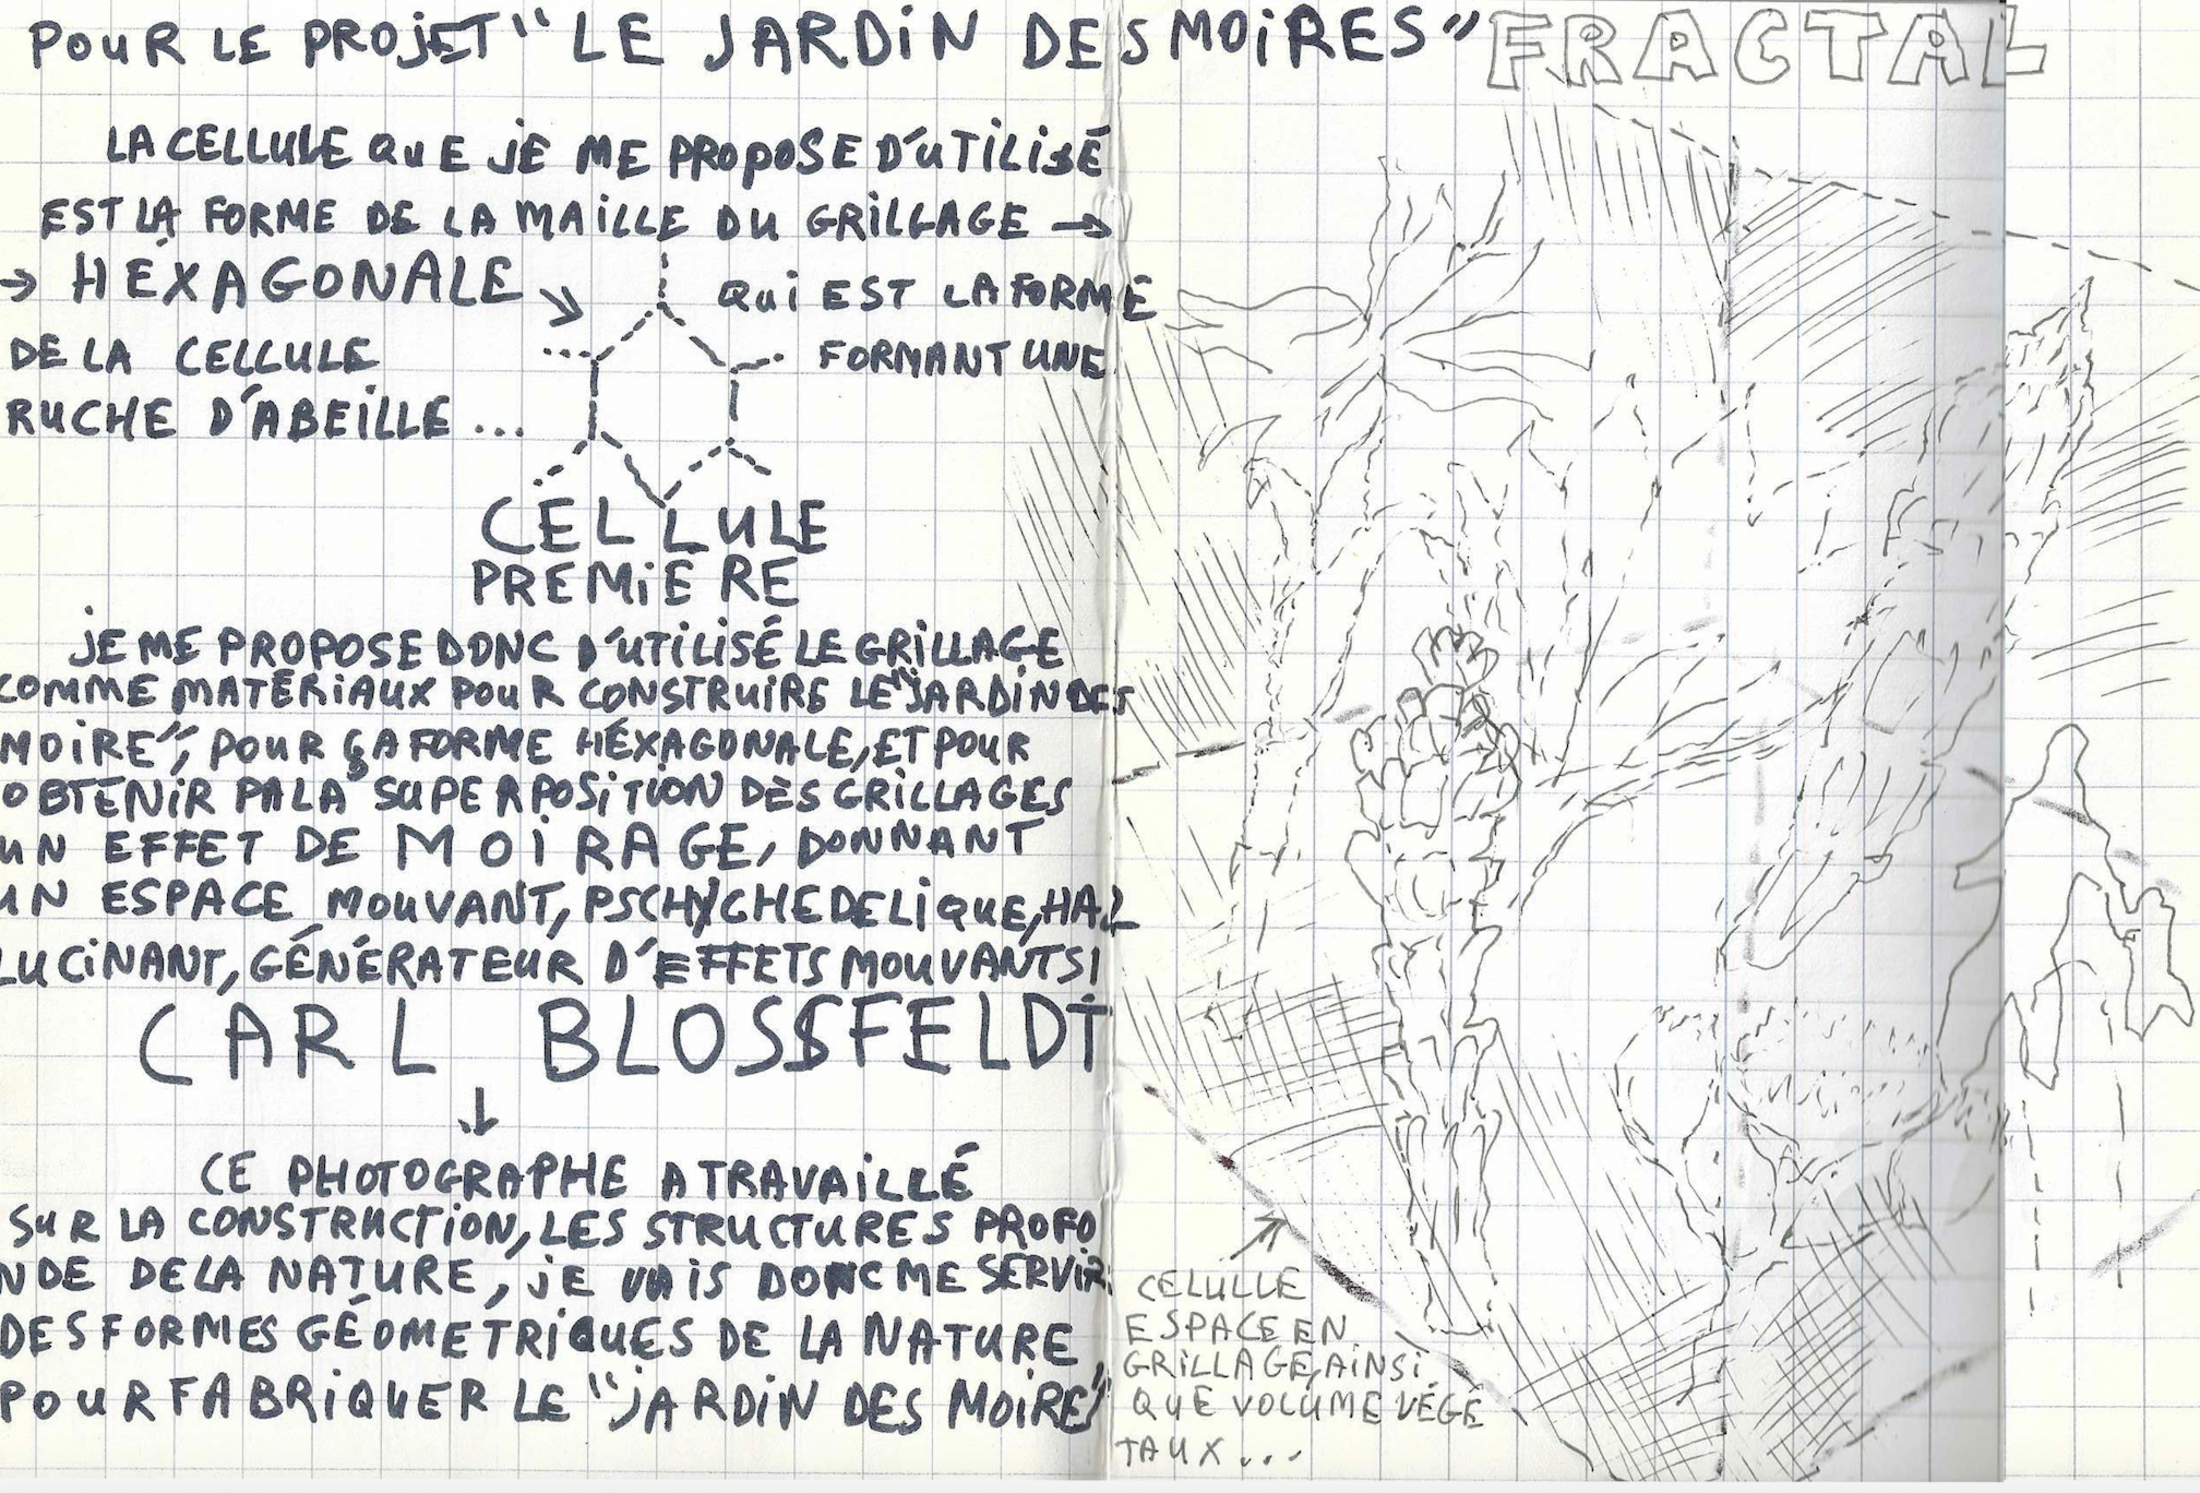 POUR LE PROJET "LE JARDIN DES MOIRES" FRACTAL
LA CELLULE QUE JE ME PROPOSE D'UTILISÉ
EST LA FORME DE LA MAILLE DU GRILLAGE →
→ HÉXAGONALE ↘ QUI EST LA FORME
DE LA CELLULE FORMANT UNE
RUCHE D'ABEILLE ...
CELLULE
PREMIERE
JE ME PROPOSE DONC D'UTILISÉ LE GRILLAGE
COMME MATÉRIAUX POUR CONSTRUIRE LE "JARDIN DES
MOIRE", POUR ÇA FORME HÉXAGONALE, ET POUR
OBTENIR PA LA SUPERPOSITION DES GRILLAGES
UN EFFET DE MOIRAGE, DONNANT
UN ESPACE MOUVANT, PSCHYCHEDELIQUE, HAL
LUCINANT, GÉNÉRATEUR D'EFFETS MOUVANTS!
CARL BLOSSFELDT
↓
CE PHOTOGRAPHE A TRAVAILLÉ
SUR LA CONSTRUCTION, LES STRUCTURES PROFO
NDE DE LA NATURE, JE VAIS DONC ME SERVIR
DES FORMES GÉOMETRIQUES DE LA NATURE
POUR FABRIQUER LE "JARDIN DES MOIRE"
CELULLE
ESPACE EN
GRILLAGE, AINSI
QUE VOLUME VÉGÉ
TAUX...